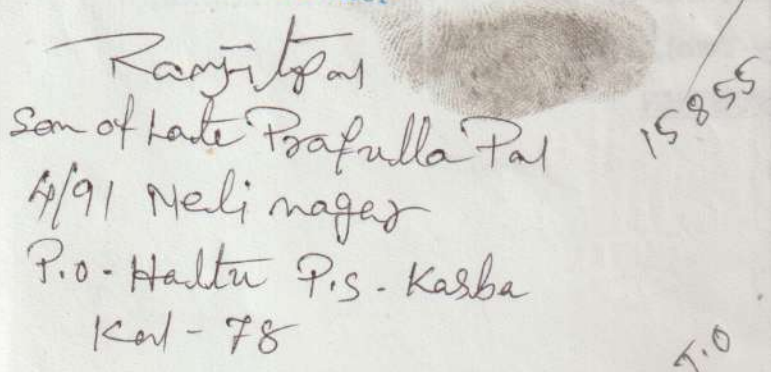 Ranjit Pal
Son of Late Prafulla Pal
4/91 Neli nagar
P.O - Haltu P.S - Kasba
Kol - 78
15855
T.O